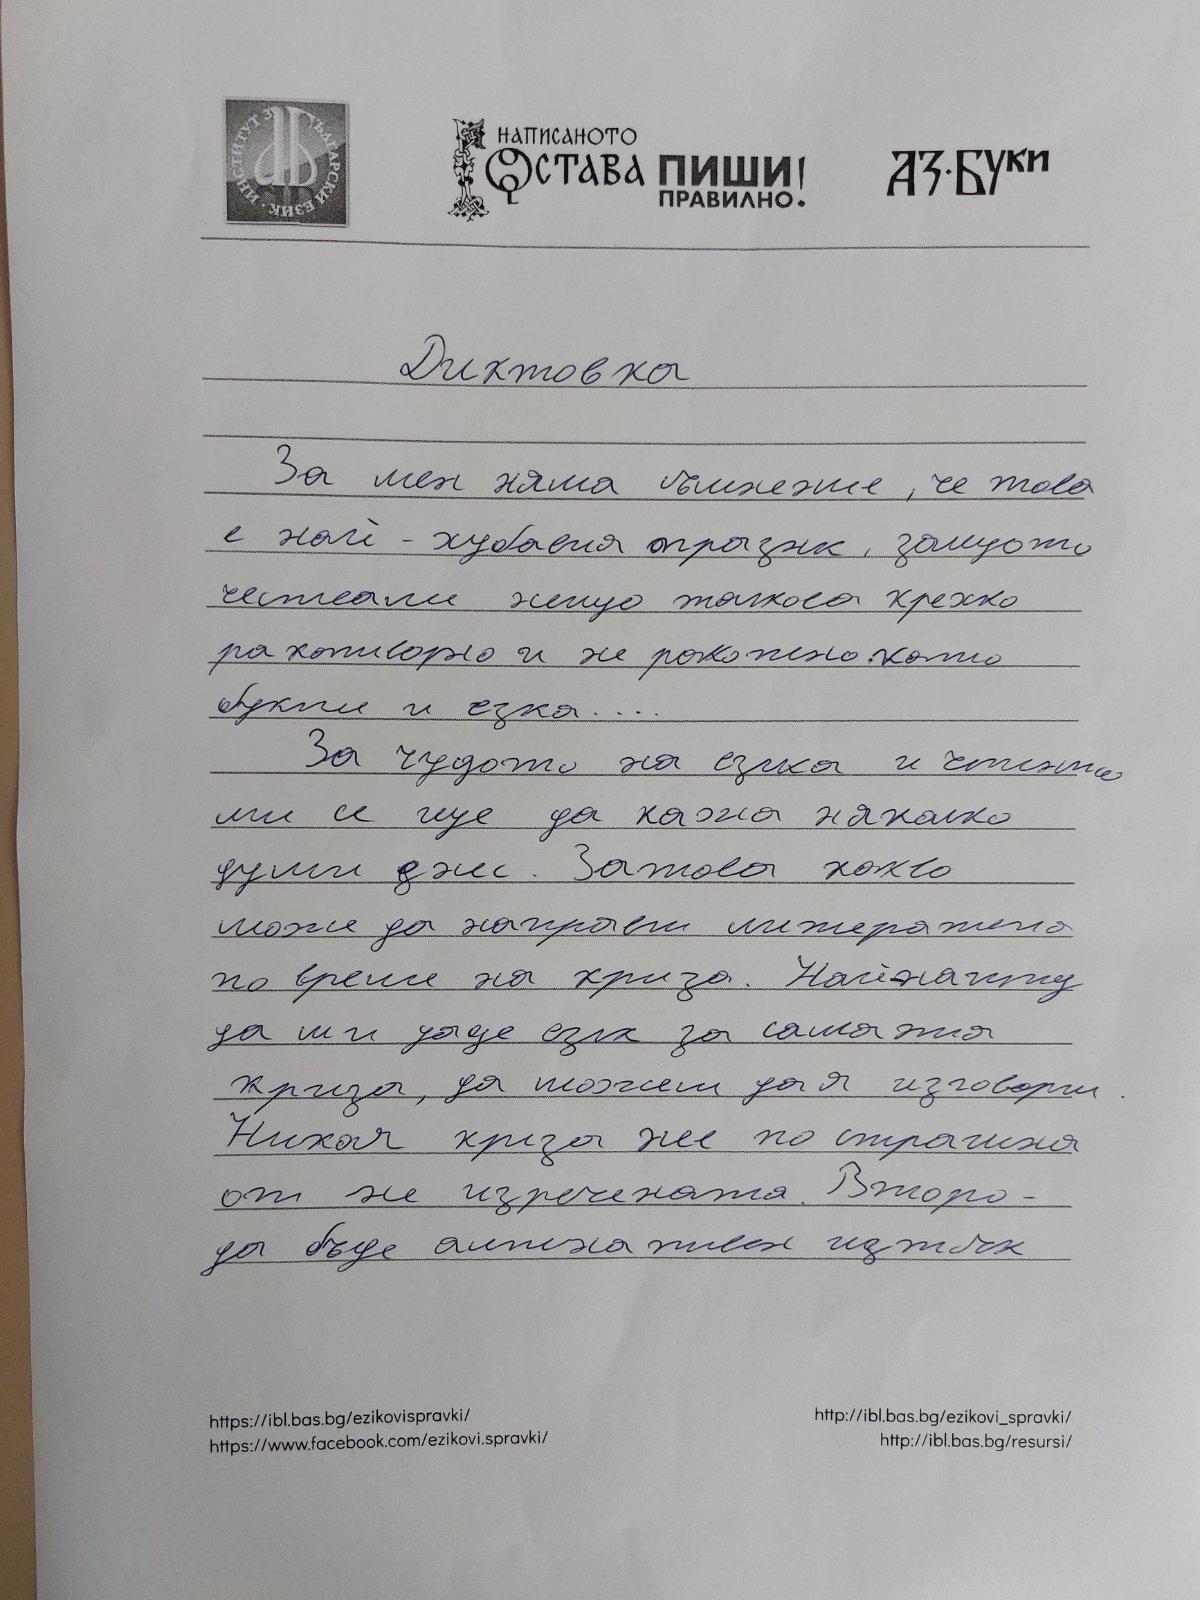 ИНСТИТУТ ЗА БЪЛГАРСКИ ЕЗИК
НАПИСАНОТО
ОСТАВА ПИШИ!
ПРАВИЛНО!
АЗ·БУКИ
Диктовка
За мен няма съмнение, че това
е най-хубавия празник, защото
честваме нещо толкова крехко
и не като
букви и езка....
За чудото на езика и четенето
ми се ще да кажа няколко
думи днес. Затова какво
може да направи
по време на криза. Най-напред
да ми даде език за самата
криза, да можем да я изговорим.
Никая криза не по страшна
от не изречената. Второ-
да бъде
https://ibl.bas.bg/ezikovispravki/
https://www.facebook.com/ezikovi.spravki/
http://ibl.bas.bg/ezikovi_spravki/
http://ibl.bas.bg/resursi/